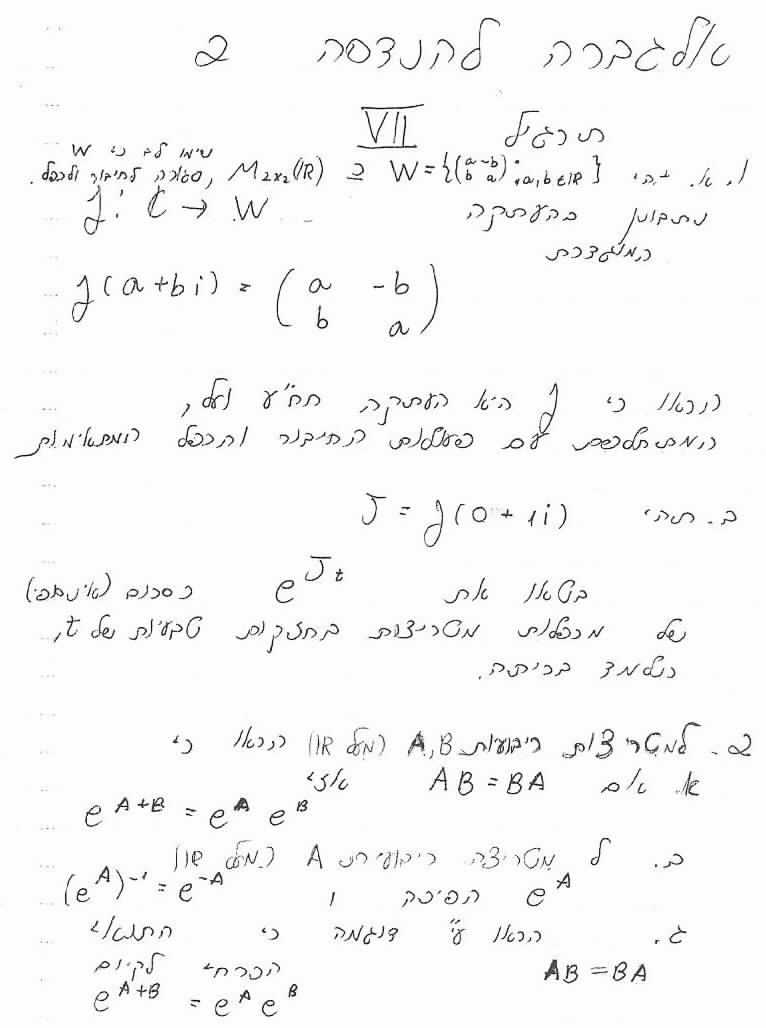 אלגברה להנדסה 2
תרגיל VII
1. א. תהי W = {(a -b; b a) : a,b∈ℝ} ⊆ M₂ₓ₂(ℝ), שימו לב כי W סגורה לחיבור ולכפל.
נתבונן בהעתקה f: ℂ → W
המוגדרת
f(a+bi) = (a -b; b a)
הראו כי f היא העתקה חח"ע ועל,
המתחלפת עם פעולות החיבור והכפל המתאימות
ב. תהי J = f(0+1i)
בטאו את e^{Jt} כסכום (אינסופי)
של מכפלות מטריצות בחזקות טבעיות של t,
כנלמד בכיתה.
2. למטריצות ריבועיות A,B (מעל ℝ) הראו כי
א. אם AB = BA אזי
e^{A+B} = e^A e^B
ב. ל מטריצה ריבועית A (מעל ℝ)
e^A הפיכה ו (e^A)^{-1} = e^{-A}
ג. הראו ע"י דוגמה כי התנאי
AB = BA הכרחי לקיום
e^{A+B} = e^A e^B